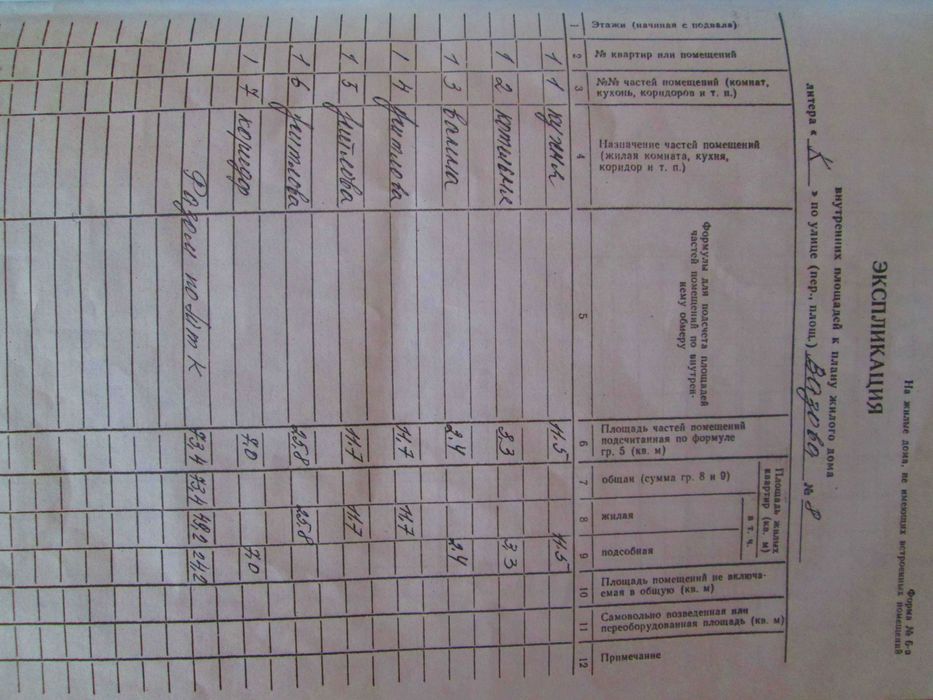 Форма № 6-а
На жилые дома, не имеющих встроенных помещений
ЭКСПЛИКАЦИЯ
внутренних площадей к плану жилого дома
литера « К » по улице (пер., площ.) № 8
Этажи (начиная с подвала)
№ квартир или помещений
№№ частей помещений (комнат, кухонь, коридоров и т. п.)
Назначение частей помещений (жилая комната, кухня, коридор и т. п.)
Формулы для подсчета площадей частей помещений по внутреннему обмеру
Площадь частей помещений подсчитанная по формуле гр. 5 (кв. м)
Площадь жилых квартир (кв. м)
общая (сумма гр. 8 и 9)
в т. ч.
жилая
подсобная
Площадь помещений не включаемая в общую (кв. м)
Самовольно возведенная или переоборудованная площадь (кв. м)
Примечание
1 2 3 4 5 6 7 8 9 10 11 12
1 1 кухня 11.5 11.5
1 2 3.3 3.3
1 3 ванна 2.4 2.4
1 4 11.7 11.7
1 5 11.7 11.7
1 6 25.8 25.8
1 7 коридор 7.0 7.0
по лит К 73.4 73.4 49.2 24.2